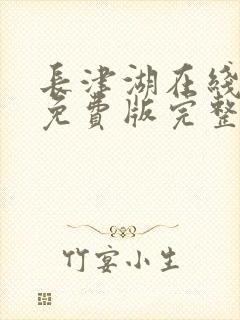 長津湖在綫
免費版完整
竹宴小生